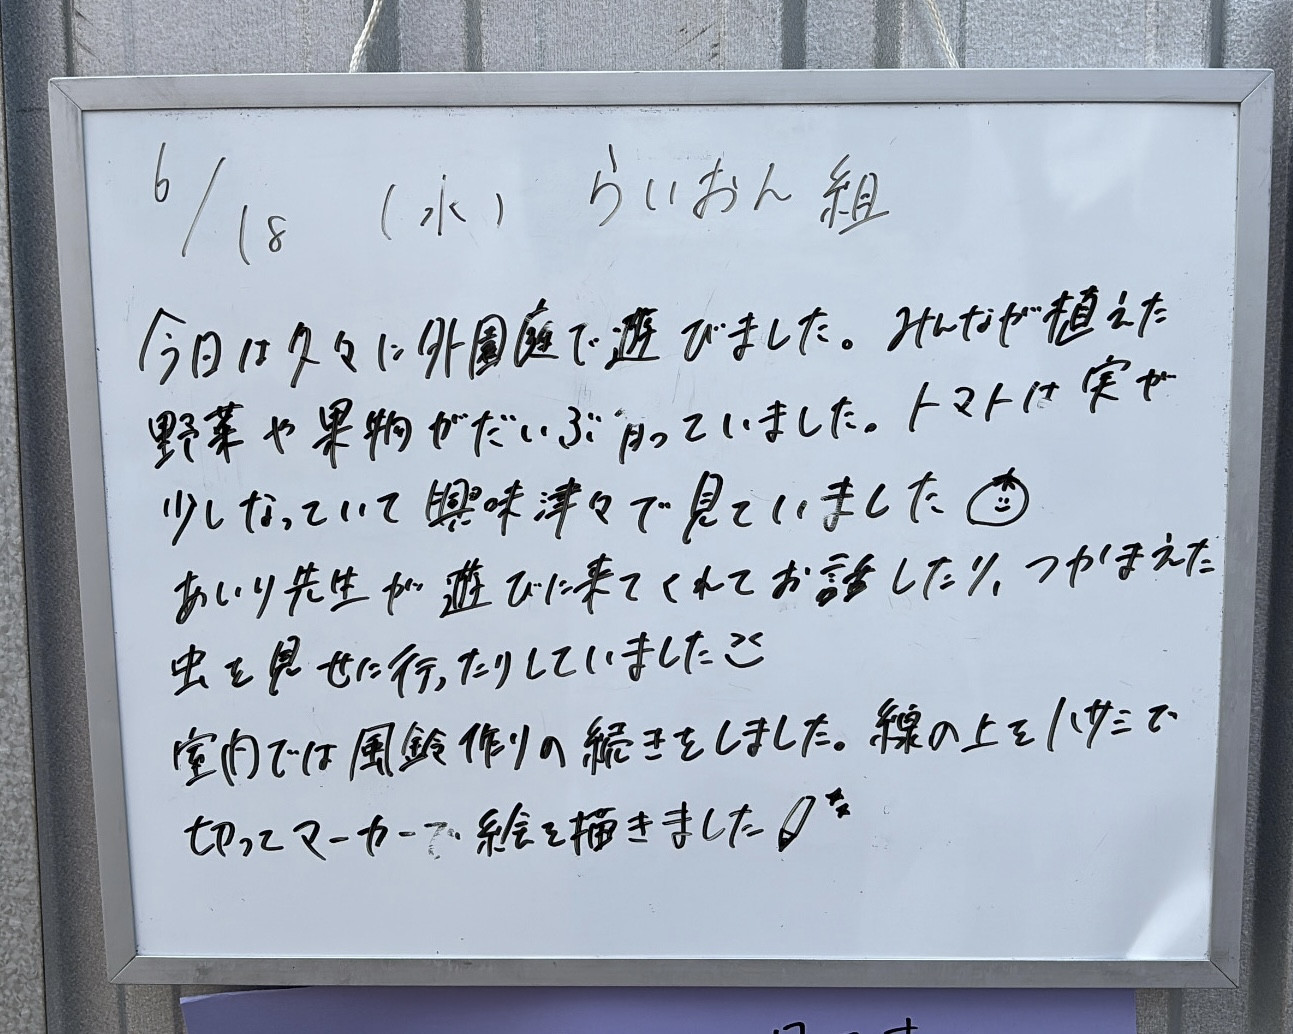 6/18 (水) らいおん組
今日は久々に外園庭で遊びました。みんなが植えた
野菜や果物がだいぶ育っていました。トマトは実が
少しなっていて興味津々で見ていました
あいり先生が遊びに来てくれてお話したり、つかまえた
虫を見せに行ったりしていました
室内では風鈴作りの続きをしました。線の上をハサミで
切ってマーカーで絵を描きました